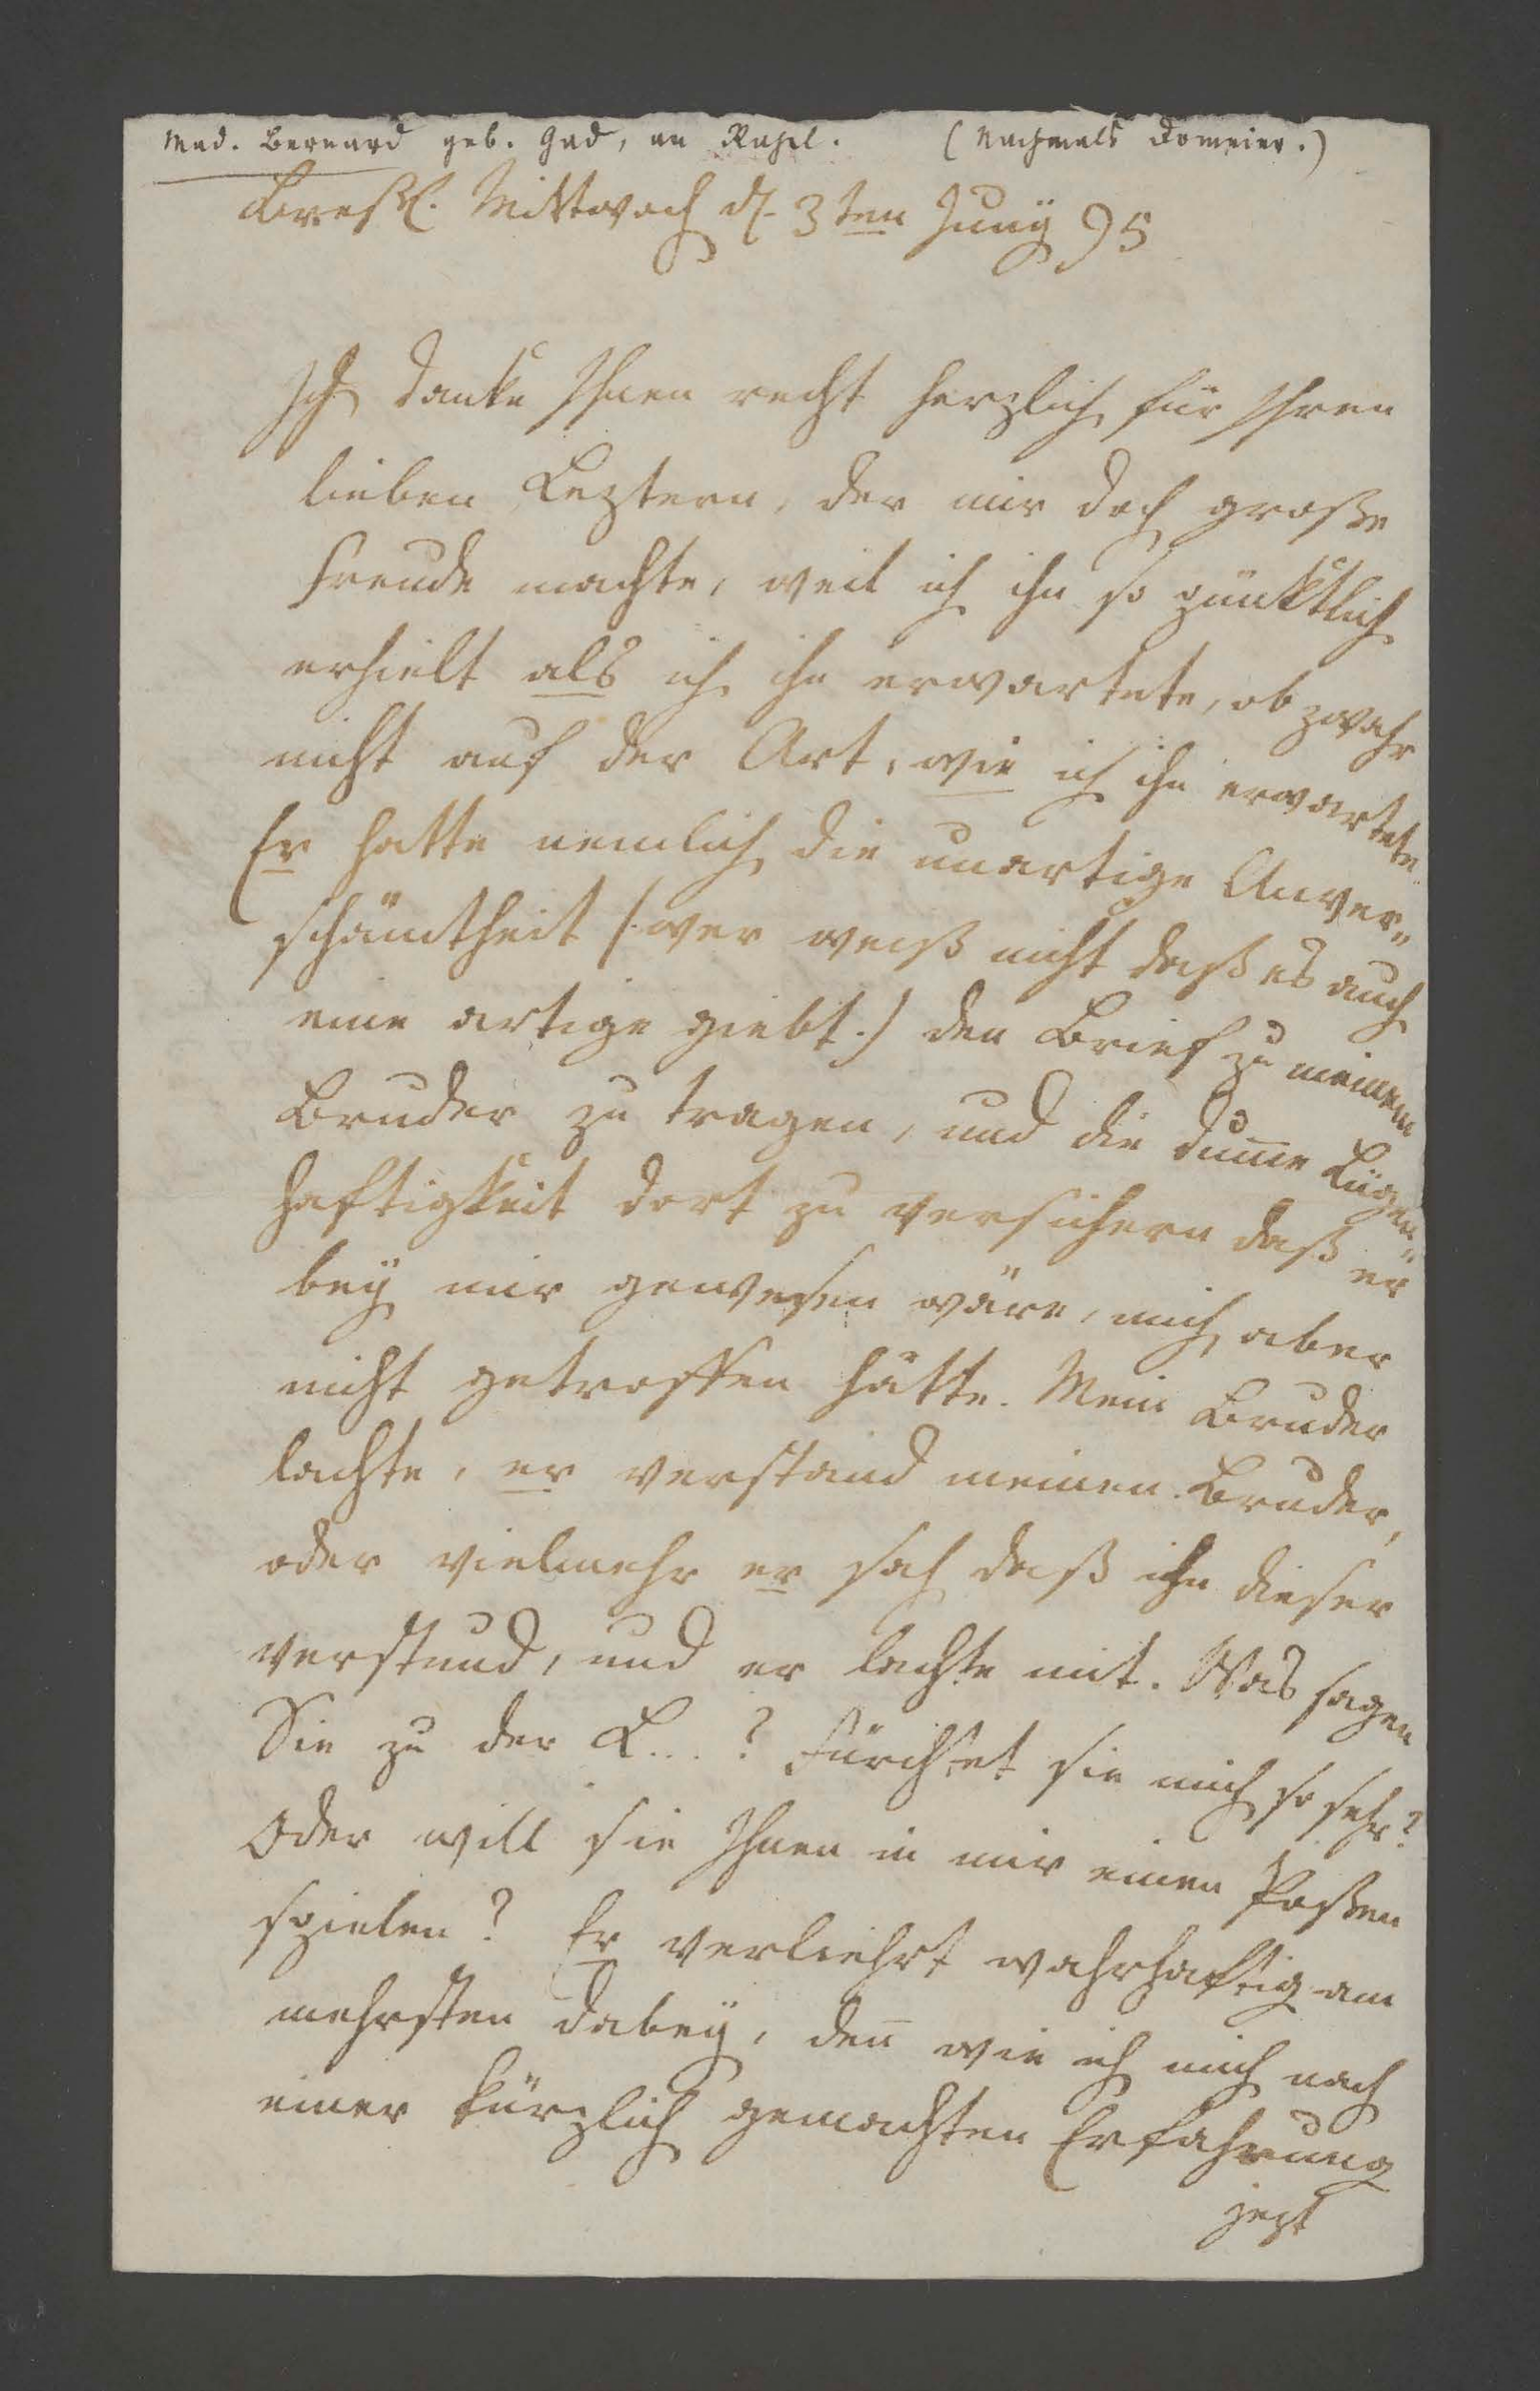 Mad. Bernard geb. Gad, an Rahel. (Nachmals Domeier.)
Bresl. Mittwoch d. 3ten Juny 95
Ich danke Ihnen recht herzlich für Ihren
lieben Leztern, der mir doch große
Freude machte, weil ich ihn so pünktlich
erhielt als ich ihn erwartete, ob zwahr
nicht auf der Art, wie ich ihn erwartete
Er hatte nemlich die unartige Unver„
schämtheit /: wer weiß nicht daß es auch
eine artige giebt :/ den Brief zu meinem
Bruder zu tragen, und die dum̅e Lügen„
haftigkeit dort zu versichern daß er
bey mir gewesen wäre, mich aber
nicht getroffen hätte. Mein Bruder
lachte, er verstand meinen Bruder,
oder vielmehr er sah daß ihn dieser
verstund, und er lachte mit. Was sagen
Sie zu der L...? Fürchtet sie mich so sehr?
Oder will sie Ihnen in mir einen Poßen
spielen? Er verliehrt wahrhaftig am
mehrsten dabey, den̅ wie ich mich nach
einer kürzlich gemachten Erfahrung
jezt